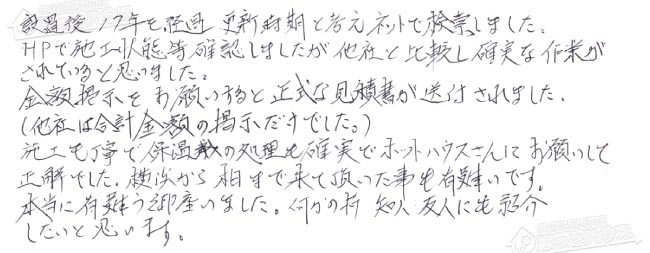 設置後17年を経過 更新時期と考えネットで検索しました。
HPで施工状態等確認しましたが他社と比較し確実な作業が
されていると思いました。
金額掲示をお願いすると正式な見積書が送付されました。
(他社は合計金額の掲示だけでした。)
施工も丁寧で保温の処理も確実でホットハウスさんにお願いして
正解でした。横浜から柏まで来て頂いた事も有難いです。
本当に有難う御座いました。何かの折 知人 友人にも紹介
したいと思います。